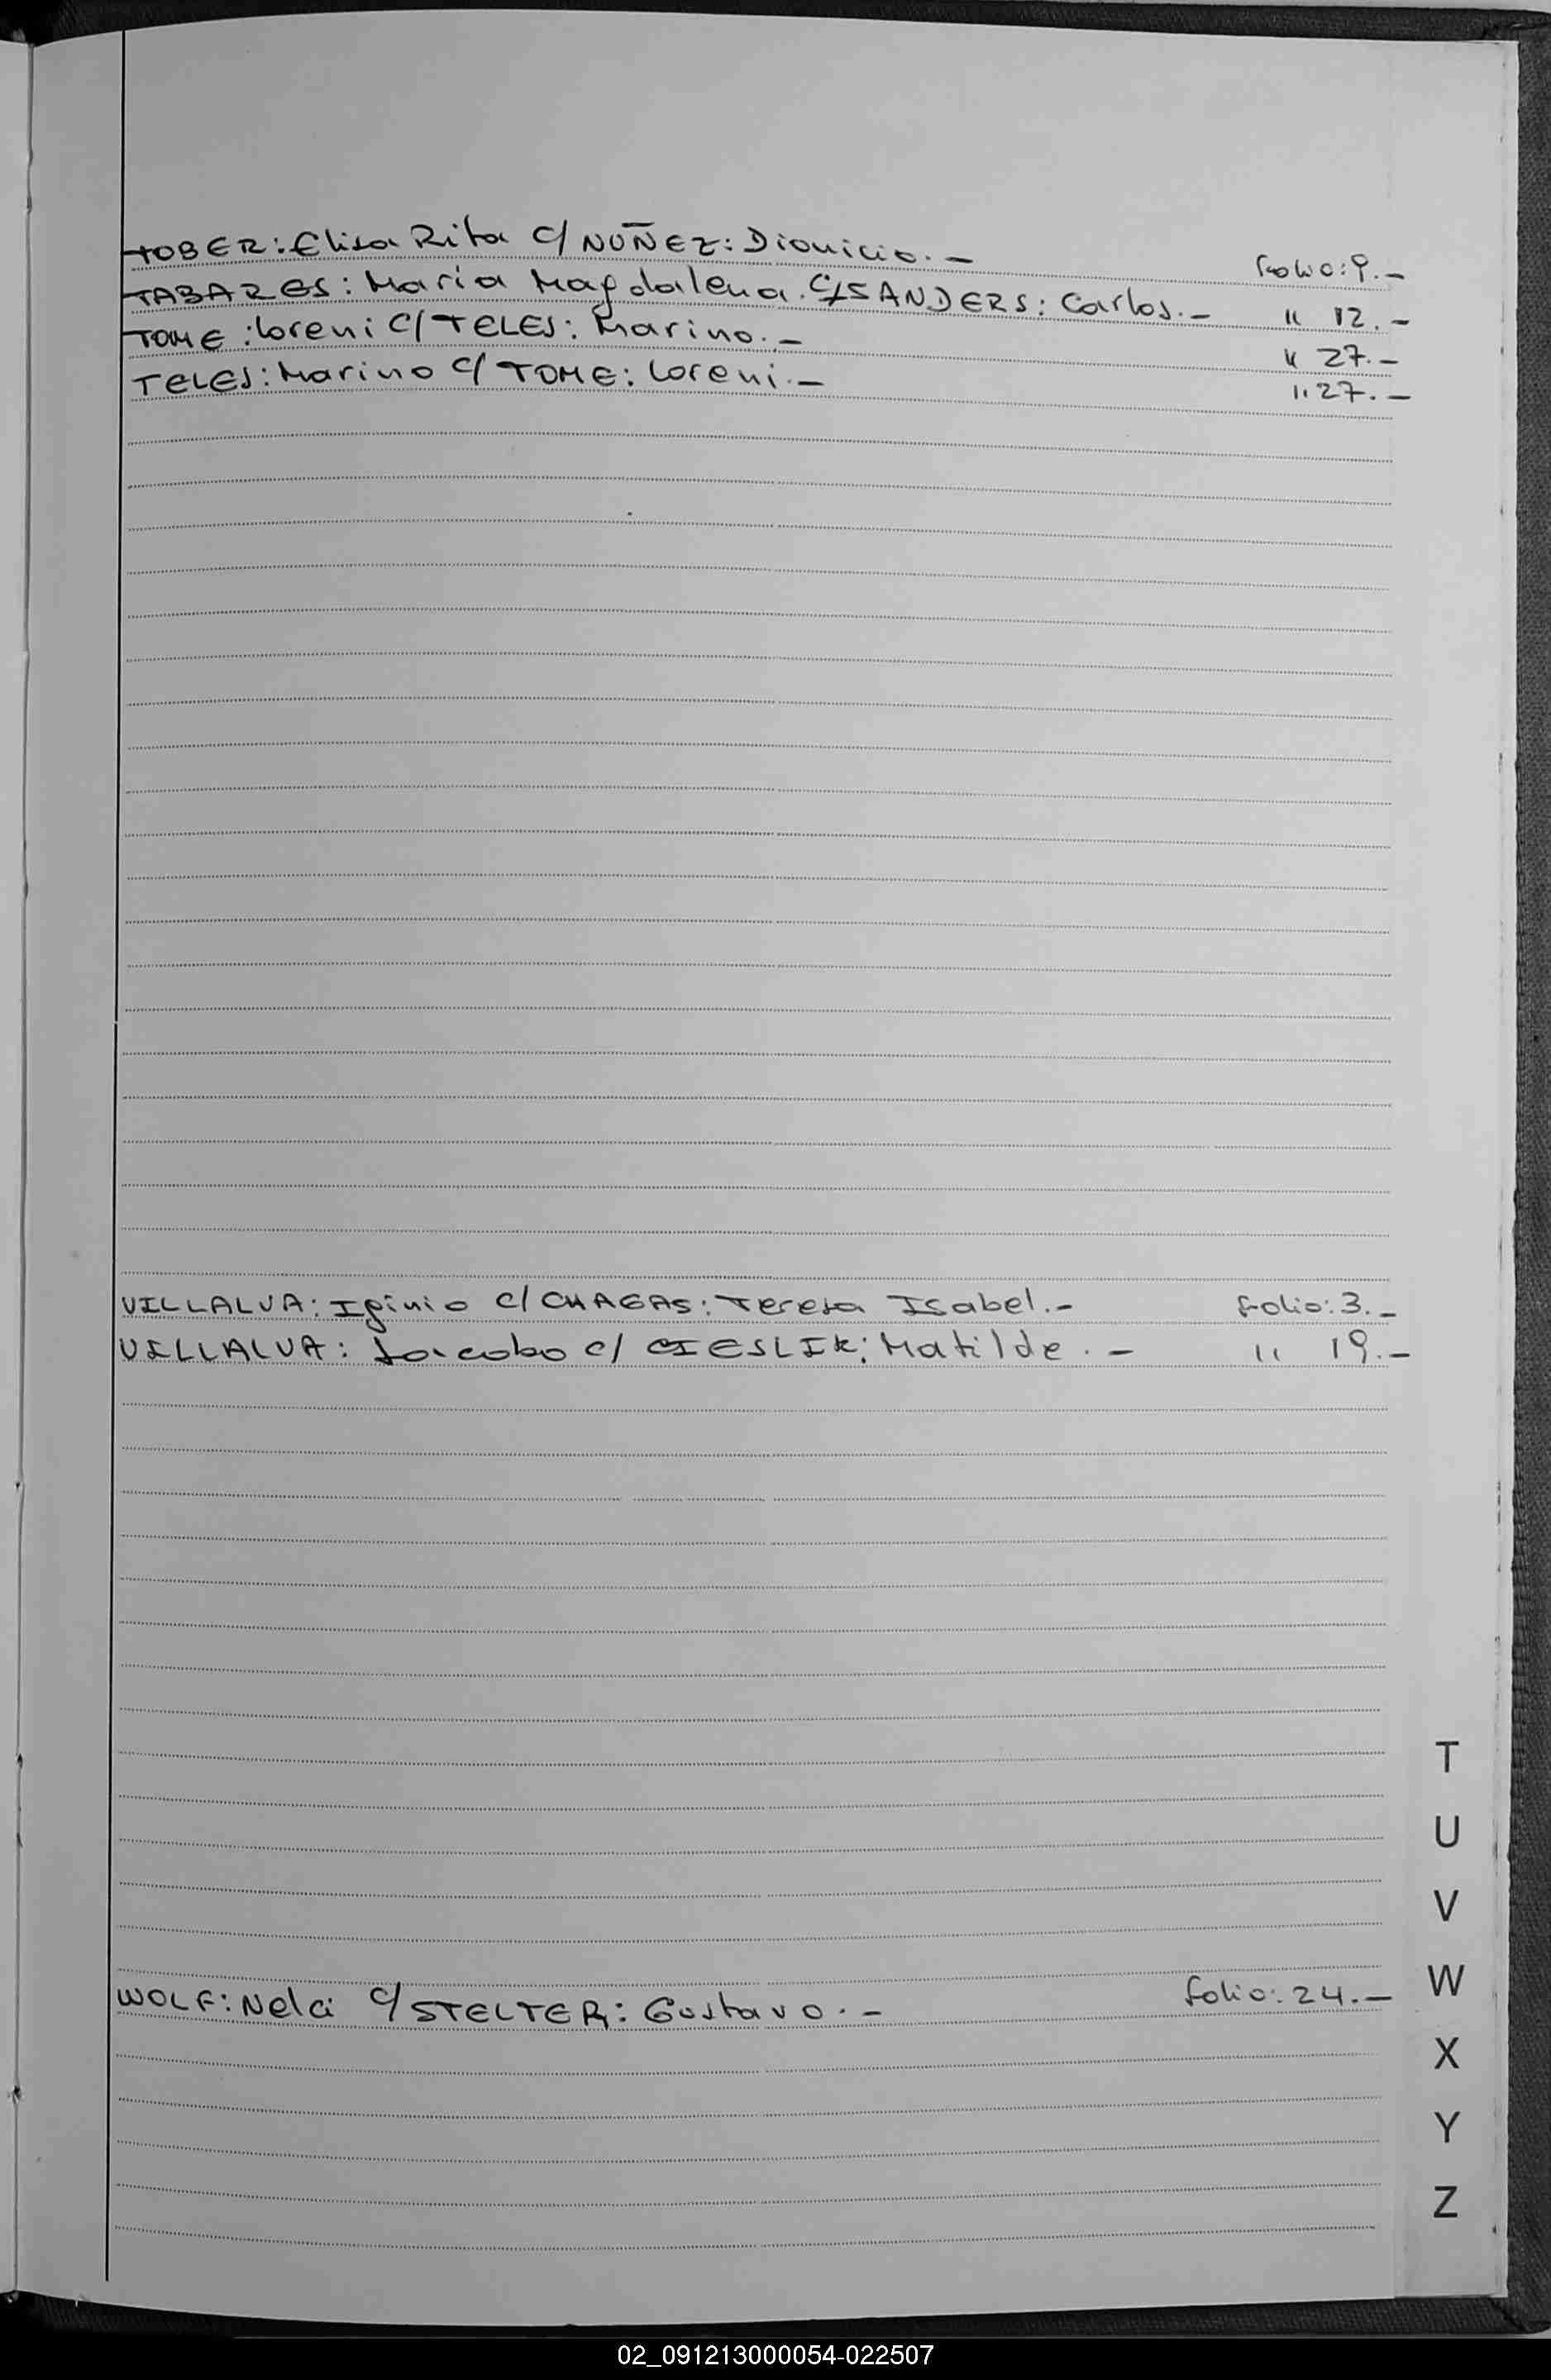 TOBER: Elisa Rita C/ NUÑEZ: Dionicio.— Folio: 9.—
TABARES: Maria Magdalena. C/SANDERS: Carlos.— " 12.—
TOME: Loreni C/ TELES: Marino.— " 27.—
TELES: Marino C/ TOME: Loreni.— " 27.—
VILLALVA: Iginio C/ CHAGAS: Teresa Isabel.— Folio: 3.—
VILLALVA: Jacobo C/ CIESLIK: Matilde.— " 19.—
WOLF: Nelci C/ STELTER: Gustavo.— Folio: 24.—
T
U
V
W
X
Y
Z
02_091213000054-022507